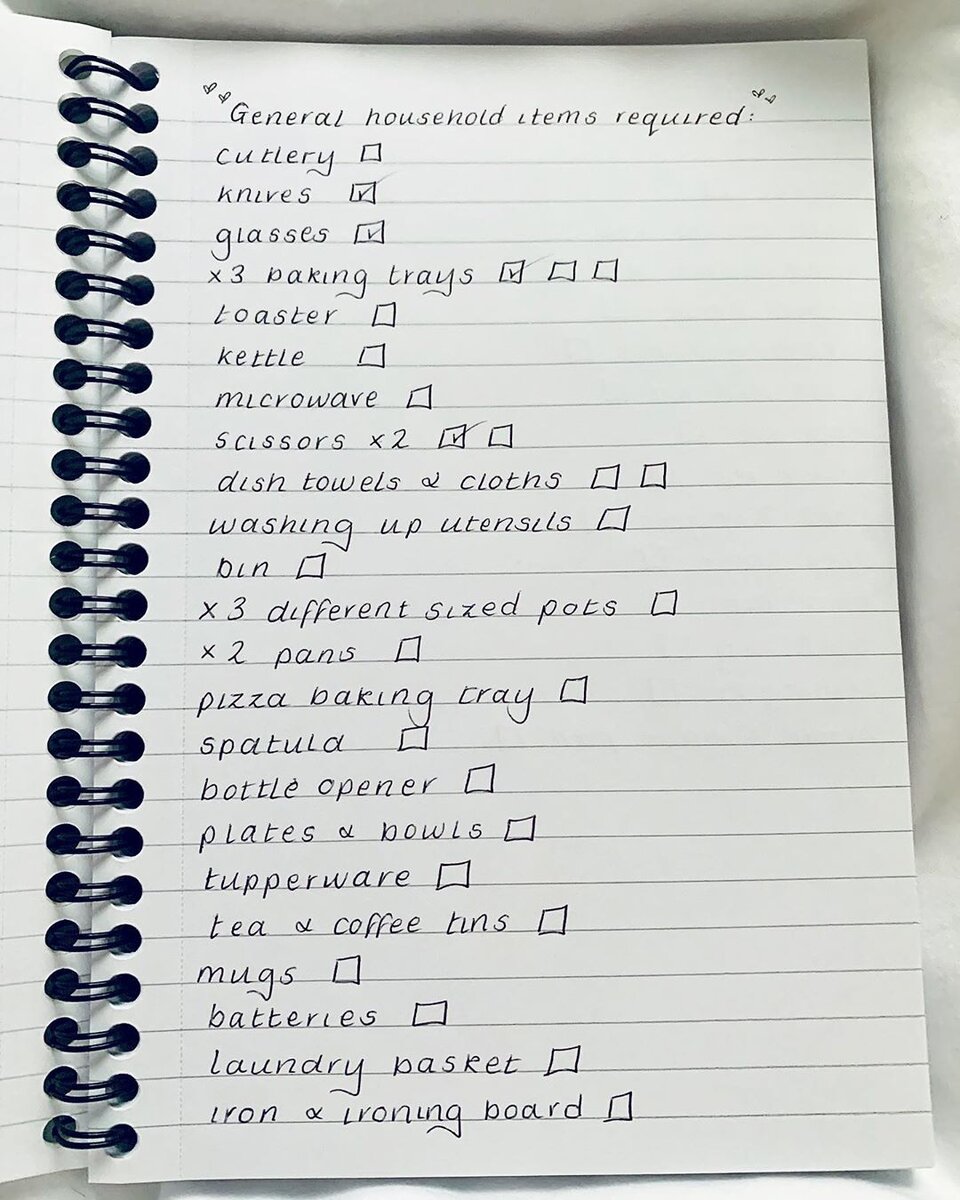 General household items required:
cutlery ☐
knives ☑
glasses ☑
x3 baking trays ☑ ☐ ☐
toaster ☐
kettle ☐
microwave ☐
scissors x2 ☑ ☐
dish towels & cloths ☐ ☐
washing up utensils ☐
bin ☐
x3 different sized pots ☐
x2 pans ☐
pizza baking tray ☐
spatula ☐
bottle opener ☐
plates & bowls ☐
tupperware ☐
tea & coffee tins ☐
mugs ☐
batteries ☐
laundry basket ☐
iron & ironing board ☐